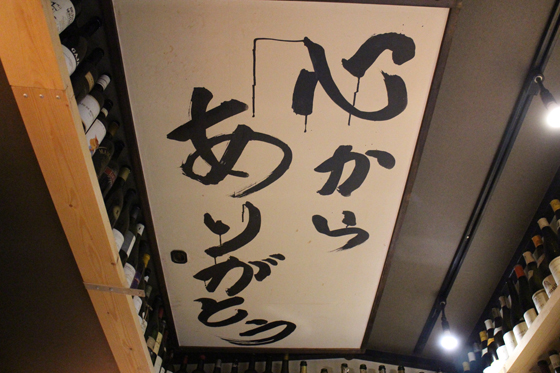 心から
「ありがとう